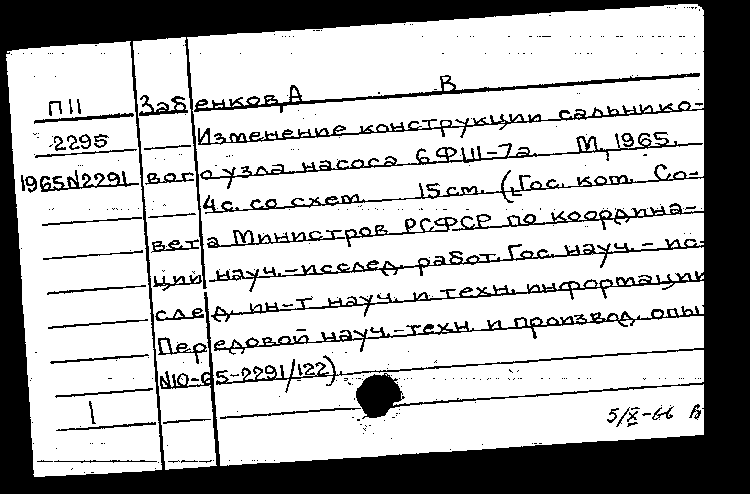 П11 Забенков, А В
2295 Изменение конструкции сальнико-
1965N2291 вого узла насоса 6ФШ-7а. М, 1965.
4с. со схем. 15см. (Гос. ком. Со-
вета Министров РСФСР по координа-
ции науч.-исслед. работ. Гос. науч.-ис-
след. ин-т науч. и техн. информации
Передовой науч.-техн. и производ. опы
N10-65-2291/122).
1
5/X-66 В